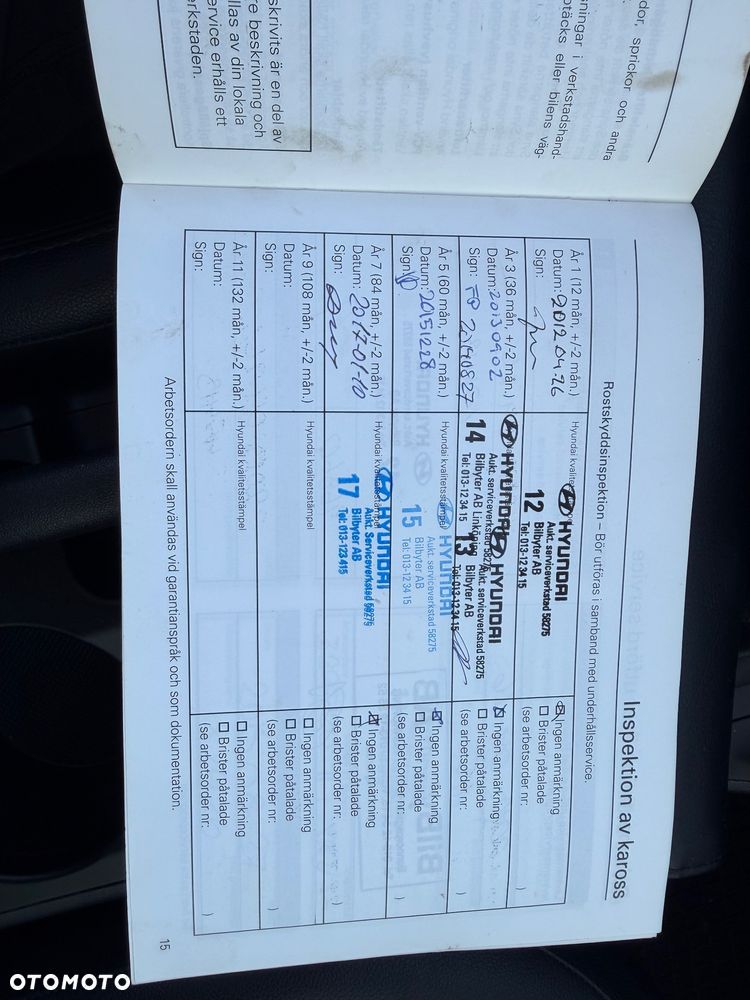 dor, sprickor och andra
ningar i verkstadshand-
täcks eller bilens väg-
skrivits är en del av
re beskrivning och
llas av din lokala
ervice erhålls ett
erkstaden.
Inspektion av kaross
Rostskyddsinspektion – Bör utföras i samband med underhållsservice.
År 1 (12 mån, +/-2 mån.)
Datum: 2012 04.26
Sign:
HYUNDAI
Aukt. serviceverkstad 58275
12 Bilbyter AB
Tel: 013-12 34 15
Ingen anmärkning
Brister påtalade
(se arbetsorder nr: )
År 3 (36 mån, +/-2 mån.)
Datum: 20130902
Sign: 20140827
HYUNDAI
Aukt. serviceverkstad 58275
14 Bilbyter AB Linköping
Tel: 013-12 34 15
HYUNDAI
Aukt. serviceverkstad 58275
13 Bilbyter AB
Tel: 013-12 34 15
Ingen anmärkning
Brister påtalade
(se arbetsorder nr: )
År 5 (60 mån, +/-2 mån.)
Datum: 20151228
Sign:
Hyundai kvalitetsstämpel
HYUNDAI
Aukt. serviceverkstad 58275
15 Bilbyter AB
Tel: 013-12 34 15
Ingen anmärkning
Brister påtalade
(se arbetsorder nr: )
År 7 (84 mån, +/-2 mån.)
Datum: 2017-01-10
Sign:
Hyundai kvalitetsstämpel
HYUNDAI
Aukt. Serviceverkstad 58275
17 Bilbyter AB
Tel: 013-123415
Ingen anmärkning
Brister påtalade
(se arbetsorder nr: )
År 9 (108 mån, +/-2 mån.)
Datum:
Sign:
Hyundai kvalitetsstämpel
Ingen anmärkning
Brister påtalade
(se arbetsorder nr: )
År 11 (132 mån, +/-2 mån.)
Datum:
Sign:
Hyundai kvalitetsstämpel
Ingen anmärkning
Brister påtalade
(se arbetsorder nr: )
Arbetsordern skall användas vid garantianspråk och som dokumentation.
15
OTOMOTO